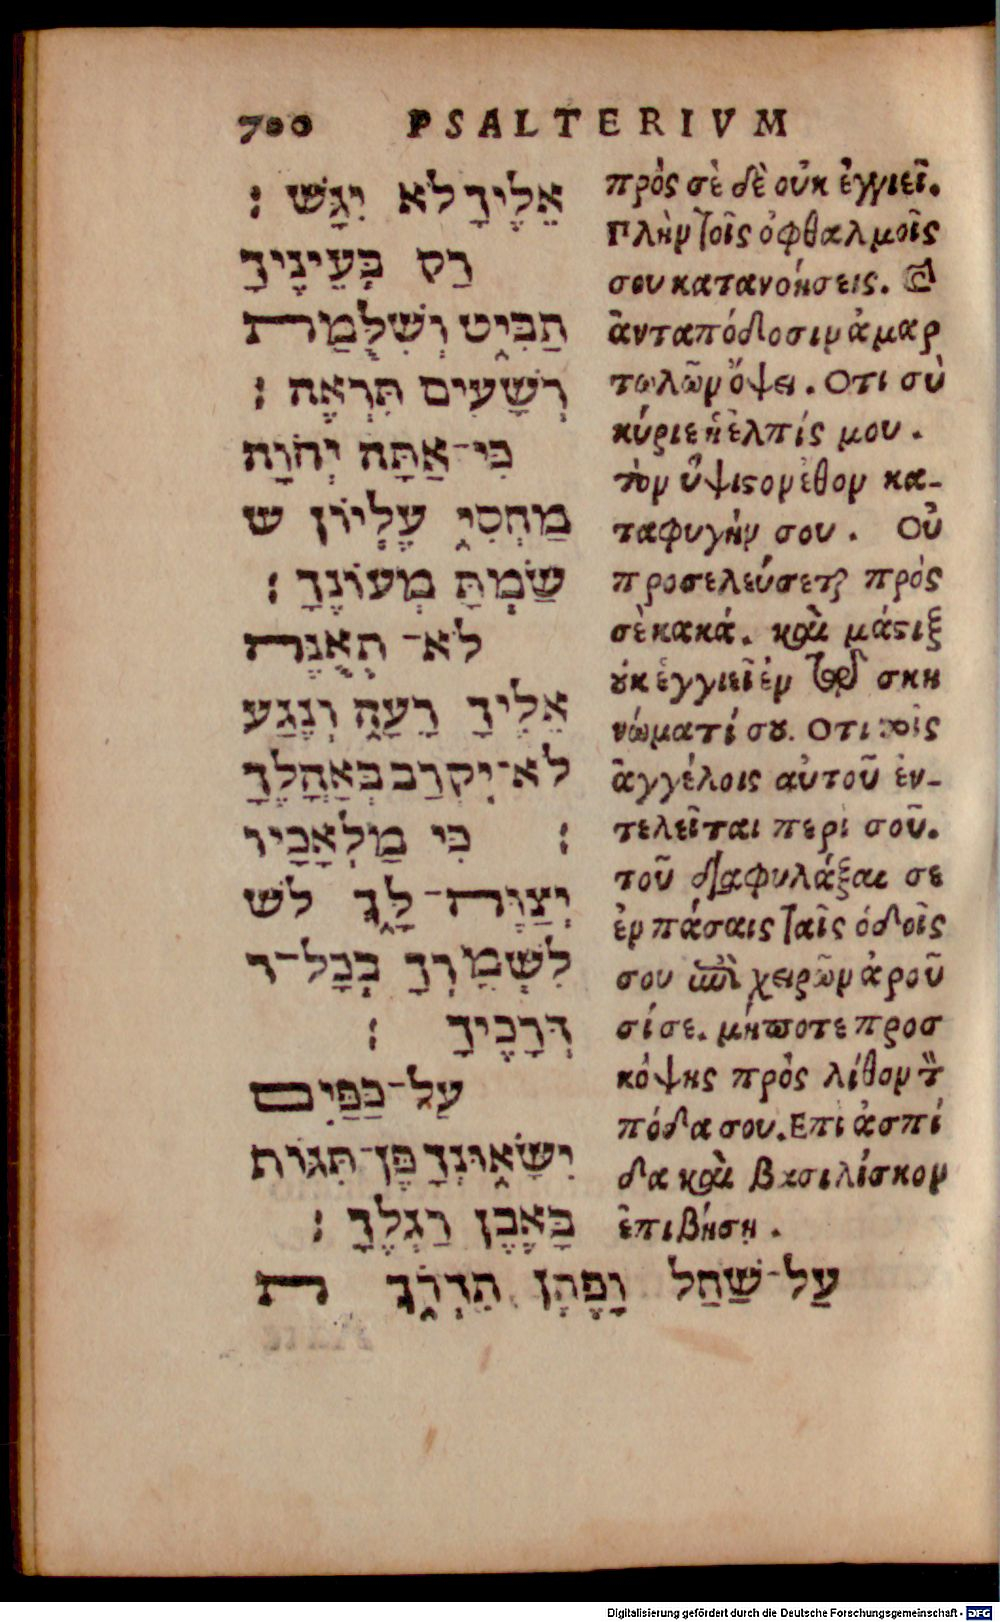 700 PSALTERIVM
אֵלֶיךָ לֹא יִגָּשׁ :
רַק בְּעֵינֶיךָ
תַבִּיט וְשִׁלֻּמַת
רְשָׁעִים תִּרְאֶה :
כִּי־אַתָּה יְהוָה
מַחְסִי עֶלְיוֹן ש
שַׂמְתָּ מְעוֹנֶךָ :
לֹא־תְאֻנֶּה
אֵלֶיךָ רָעָה וְנֶגַע
לֹא־יִקְרַב בְּאָהֳלֶךָ
: כִּי מַלְאָכָיו
יְצַוֶּה־לָּךְ לש
לִשְׁמָרְךָ בְּכָל־ד
דְּרָכֶיךָ :
עַל־כַּפַּיִם
יִשָּׂאוּנְךָ פֶּן־תִּגּוֹת
בָּאֶבֶן רַגְלֶךָ :
עַל־שַׁחַל וָפֶתֶן תִּדְרֹךְ ת
πρὸς σὲ δὲ οὐκ ἐγγιεῖ.
Πλὴν τοῖς ὀφθαλμοῖς
σου κατανοήσεις. καὶ
ἀνταπόδοσιν ἁμαρ
τωλῶν ὄψει. Οτι σὺ
κύριε ἡ ἐλπίς μου.
τὸν ὕψιϛον ἔθου κα-
ταφυγήν σου. Οὐ
προσελεύσεται πρός
σὲ κακά. καὶ μάϛιξ
ȣκ ἐγγιεῖ ἐν τῷ σκη
νώματί σȣ. Οτι τοῖς
ἀγγέλοις αὐτοῦ ἐν-
τελεῖται περὶ σοῦ.
τοῦ διαφυλάξαι σε
ἐν πάσαις ταῖς ὁδοῖς
σου ἐπὶ χειρῶν ἀροῦ
σί σε. μήποτε προσ
κόψης πρὸς λίθον τὸν
πόδα σου. Επὶ ἀσπί
δα καὶ βασιλίσκον
ἐπιβήσῃ.
Digitalisierung gefördert durch die Deutsche Forschungsgemeinschaft - DFG